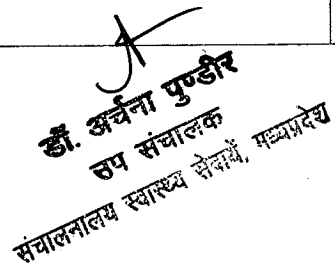 डॉ. अर्चना पुण्डीर
उप संचालक
संचालनालय स्वास्थ्य सेवायें, मध्यप्रदेश